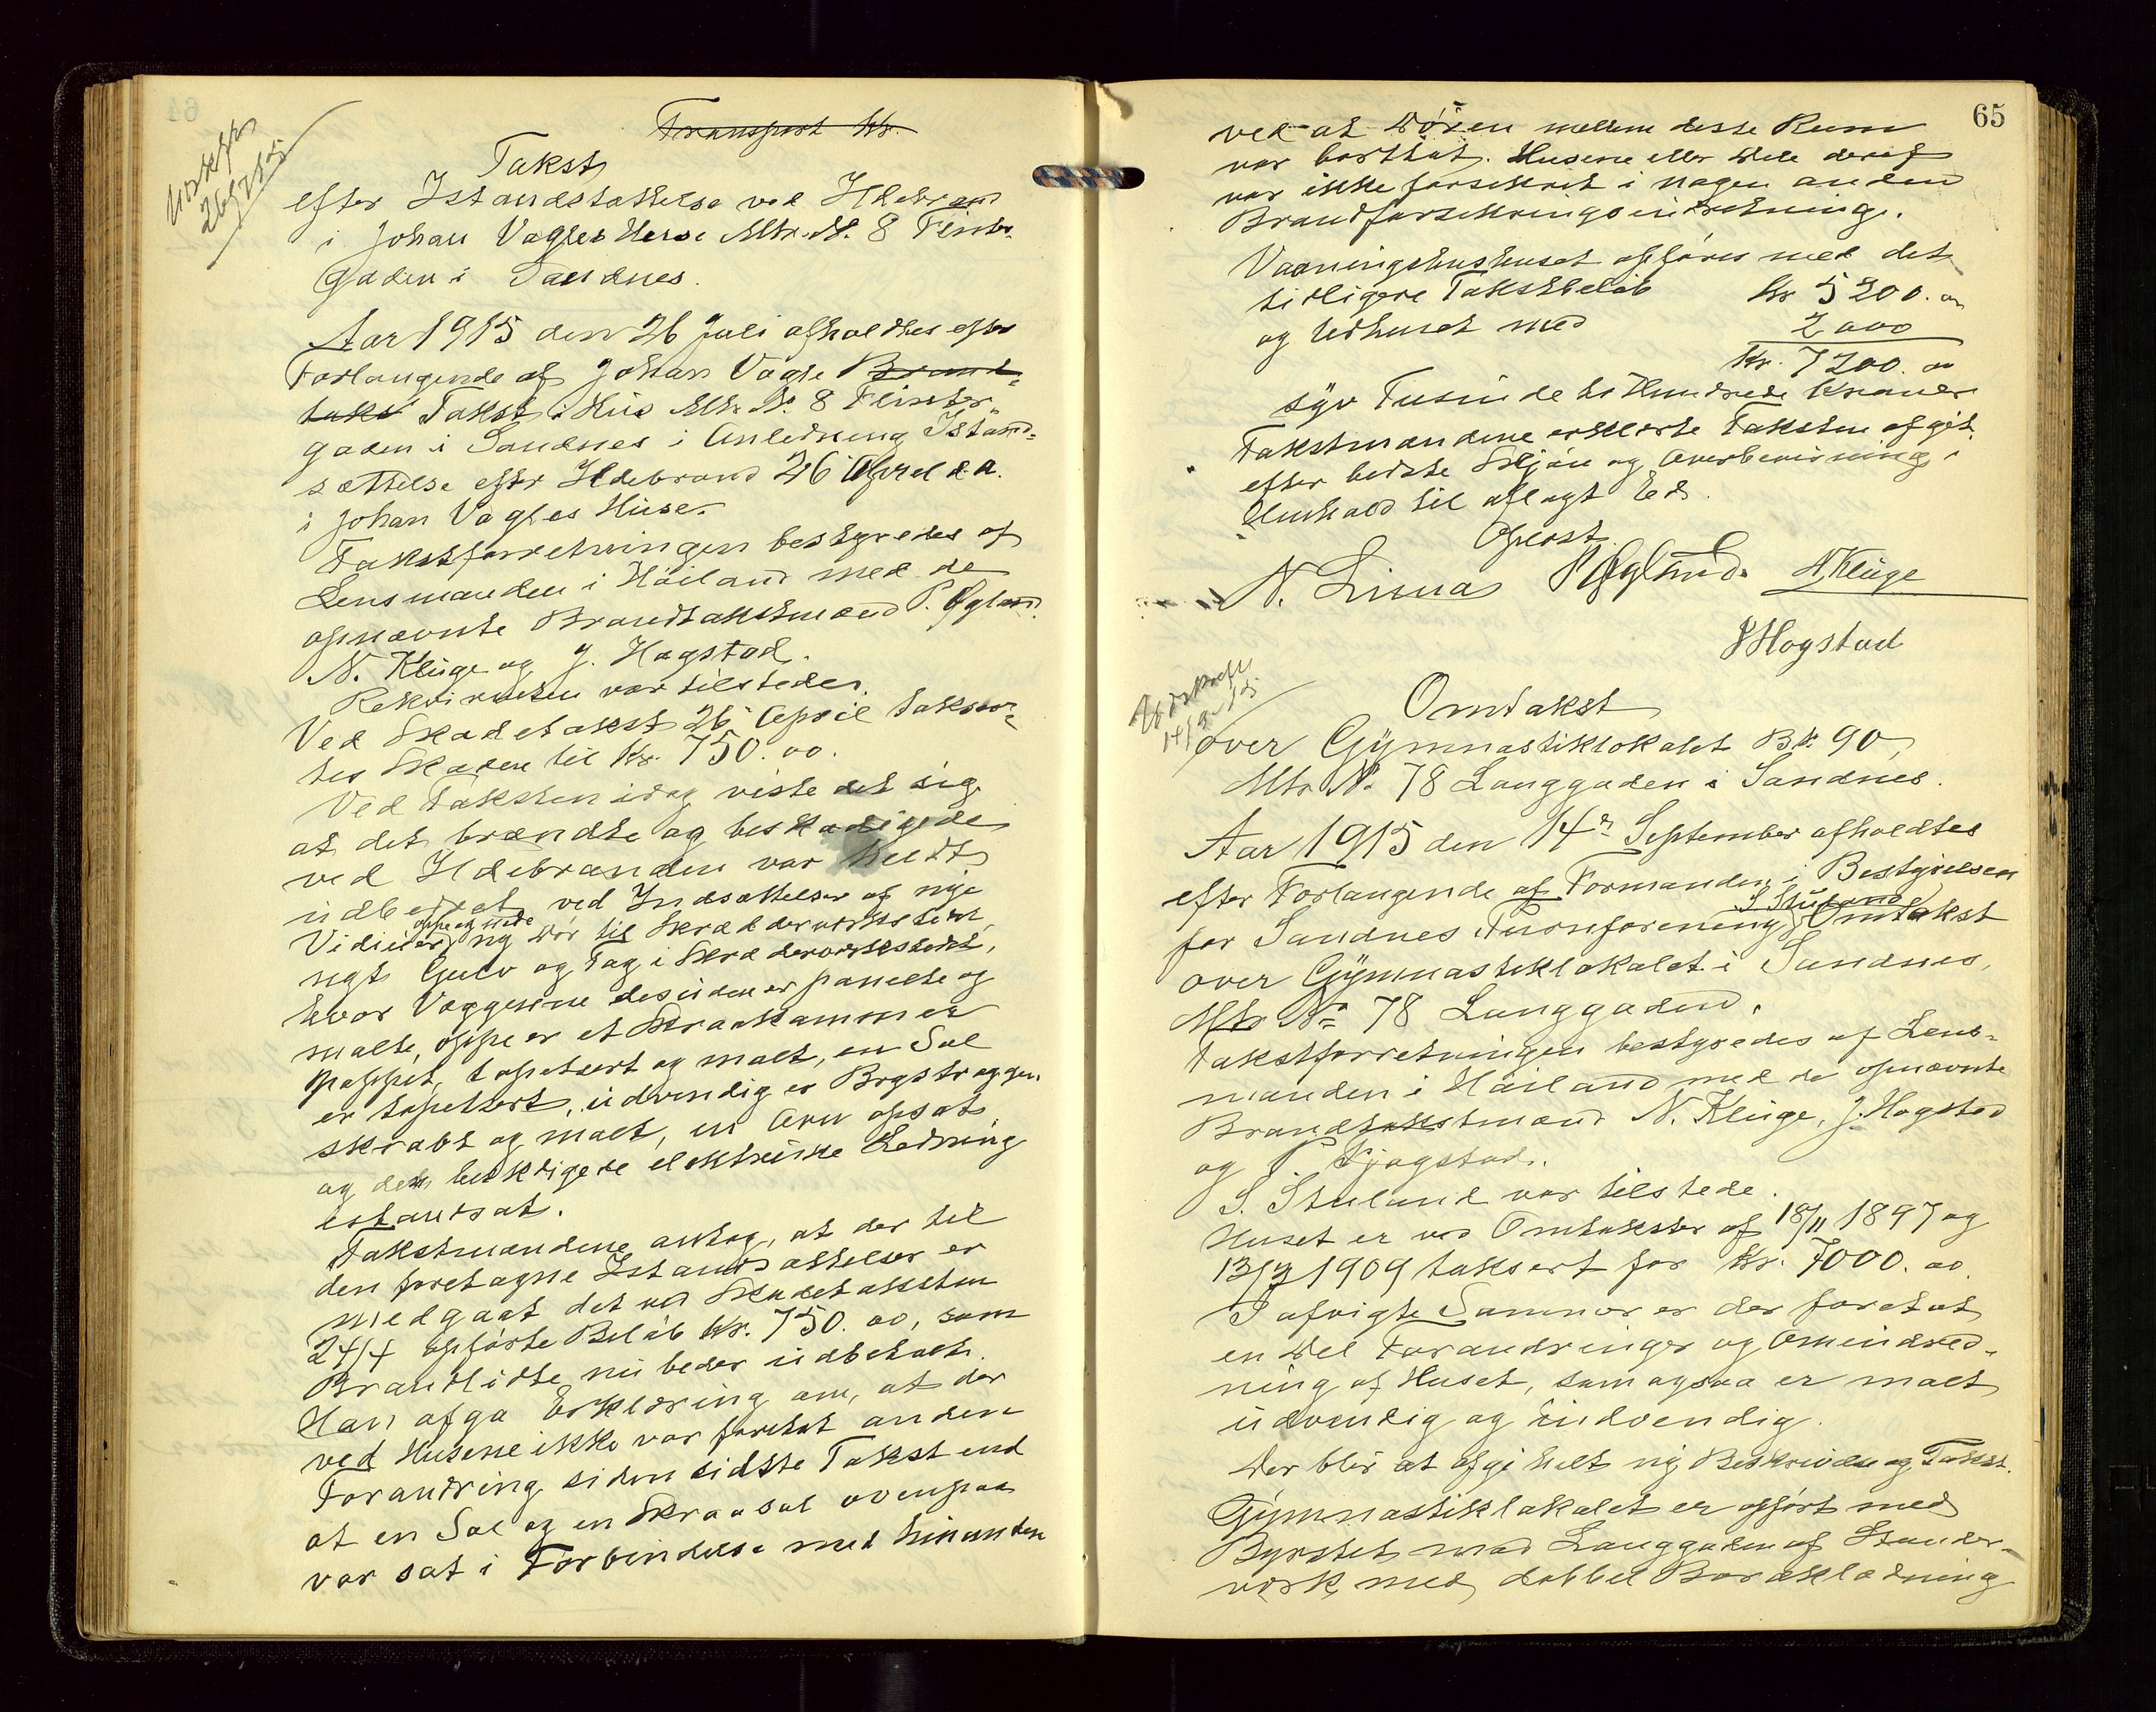 Transport Kr.
Udskrift
26/7 15
Takst
efter Istandsættelse ved Ildebrand
i Johan Vagles Huse Mtr. N. 8 Flinter-
gaden i Sandnes.
Aar 1915 den 26 Juli afholdtes efter
Forlangende af Johan Vagle Brand-
takst Takst i Hus Mtr. N. 8 Flinter-
gaden i Sandnes i Anledning Istand-
sættelse efter Ildebrand 26 April d.a.
i Johan Vagles Huse.
Takstforretningen bestyredes af
Lensmanden i Høiland med de
opnævnte Brandtakstmænd P. Øgland
N. Kluge og J. Hogstad.
Rekvirenten var tilstede.
Ved Skadetakst 26 April takser-
tes Skaden til Kr. 750.00.
Ved Taksten idag viste det sig
at det brændte og beskadigede
ved Ildebranden var heldt
udbedret ved Indsættelser af nye
Vinduer oppe og nede ny Dør til Skrædderverksted,
nyt Gulv og Tag i Skrædderverkstedet,
hvor Væggerne desuden er panelte og
malte, oppe er et Skraakammer
pappet, tapetsert og malt, en Sal
er tapetsert, udvendig er Brystvæggen
skrabt og malt, en Ovn opsat
og den beskadigede elektriske Ledning
istandsat.
Takstmændene antog, at der til
den foretagne Istandsættelser er
medgaat det ved Skadetaksten
24/4 opførte Beløb Kr. 750.00, som
Brandlidte nu beder udbetalt.
Han afga Erklæring om, at der
ved Husene ikke var foretat anden
Forandring siden sidste Takst end
at en Sal og en Skraasal ovenpaa
var sat i Forbindelse med hinanden
65
ved at Døren mellem disse Rum
var borttat. Husene eller Dele deraf
var ikke forsikret i nogen anden
Brandforsikringsindretning.
Vaaningshushuset opføres med det
tidligere Takstbeløb Kr 5200.00
og Udhuset med 2000
Kr. 7200.00
syv Tusinde to Hundrede Kroner
Takstmændene erklærte Taksten afgit
efter bedste Skjøn og Overbevisning i
Henhold til aflagt Ed.
Oplæst.
N. Limas P Øglænd. N. Kluge
J Hogstad
Udskrift
14/9 15
Omtakst
over Gymnastiklokalet B N. 90,
Mtr. N. 78 Langgaden i Sandnes.
Aar 1915 den 14de September afholdtes
efter Forlangende af Formanden i Bestyrelsen
for Sandnes Turnforening S Stuland Omtakst
over Gymnastiklokalet i Sandnes,
Mtr No 78 Langgaden.
Takstforretningen bestyredes af Lens-
manden i Høiland med de opnævnte
Brandtakstmænd N. Kluge, J. Hogstad
og P Tjogstad.
S. Stuland var tilstede.
Huset er ved Omtakster af 18/11 1897 og
13/3 1909 taksert for Kr. 7000.00
I afvigte Sommer er der foretat
en Del Forandringer og Omindred-
ning af Huset, som ogsaa er malt
udvendig og indvendig.
Der blir at afgi helt ny Beskrivelse og Takst.
Gymnastiklokalet er opført med
Brystet mod Langgaden af Stender-
verk med dobbel Bordklædning